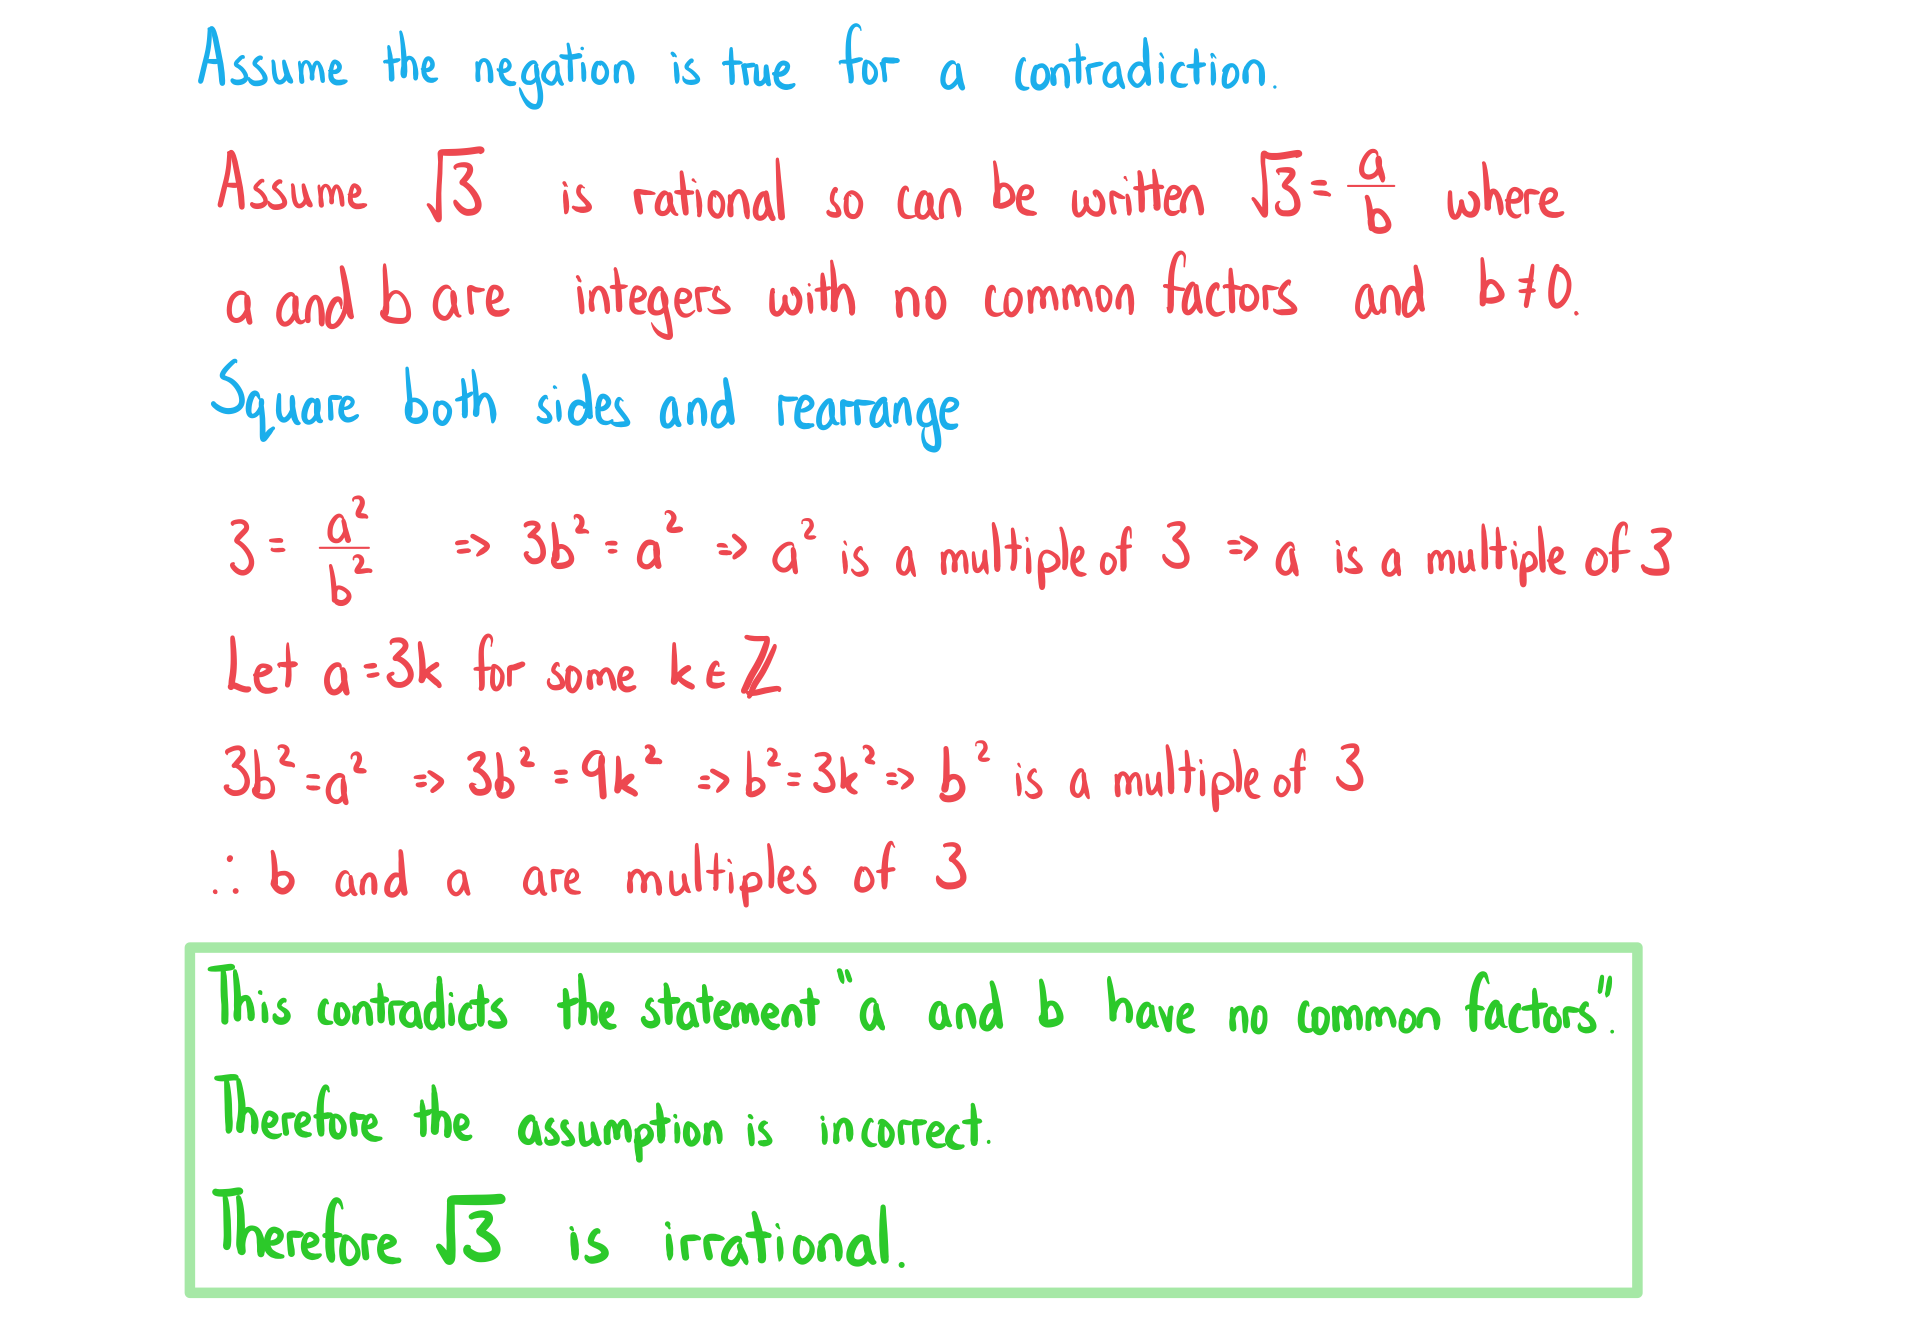 Assume the negation is true for a contradiction.
Assume √3 is rational so can be written √3 = a/b where
a and b are integers with no common factors and b ≠ 0.
Square both sides and rearrange
3 = a²/b² => 3b² = a² => a² is a multiple of 3 => a is a multiple of 3
Let a = 3k for some k ∈ ℤ
3b² = a² => 3b² = 9k² => b² = 3k² => b² is a multiple of 3
∴ b and a are multiples of 3
This contradicts the statement "a and b have no common factors".
Therefore the assumption is incorrect.
Therefore √3 is irrational.